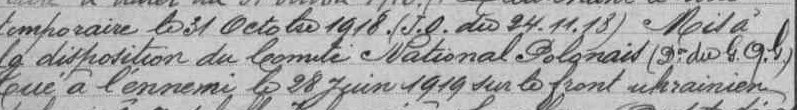 temporaire le 31 Octobre 1918. (J.O. du 24.11.18) Mis à
la disposition du Comité National Polonais (Don du G.Q.G)
Tué à l'ennemi le 28 Juin 1919 sur le front ukrainien